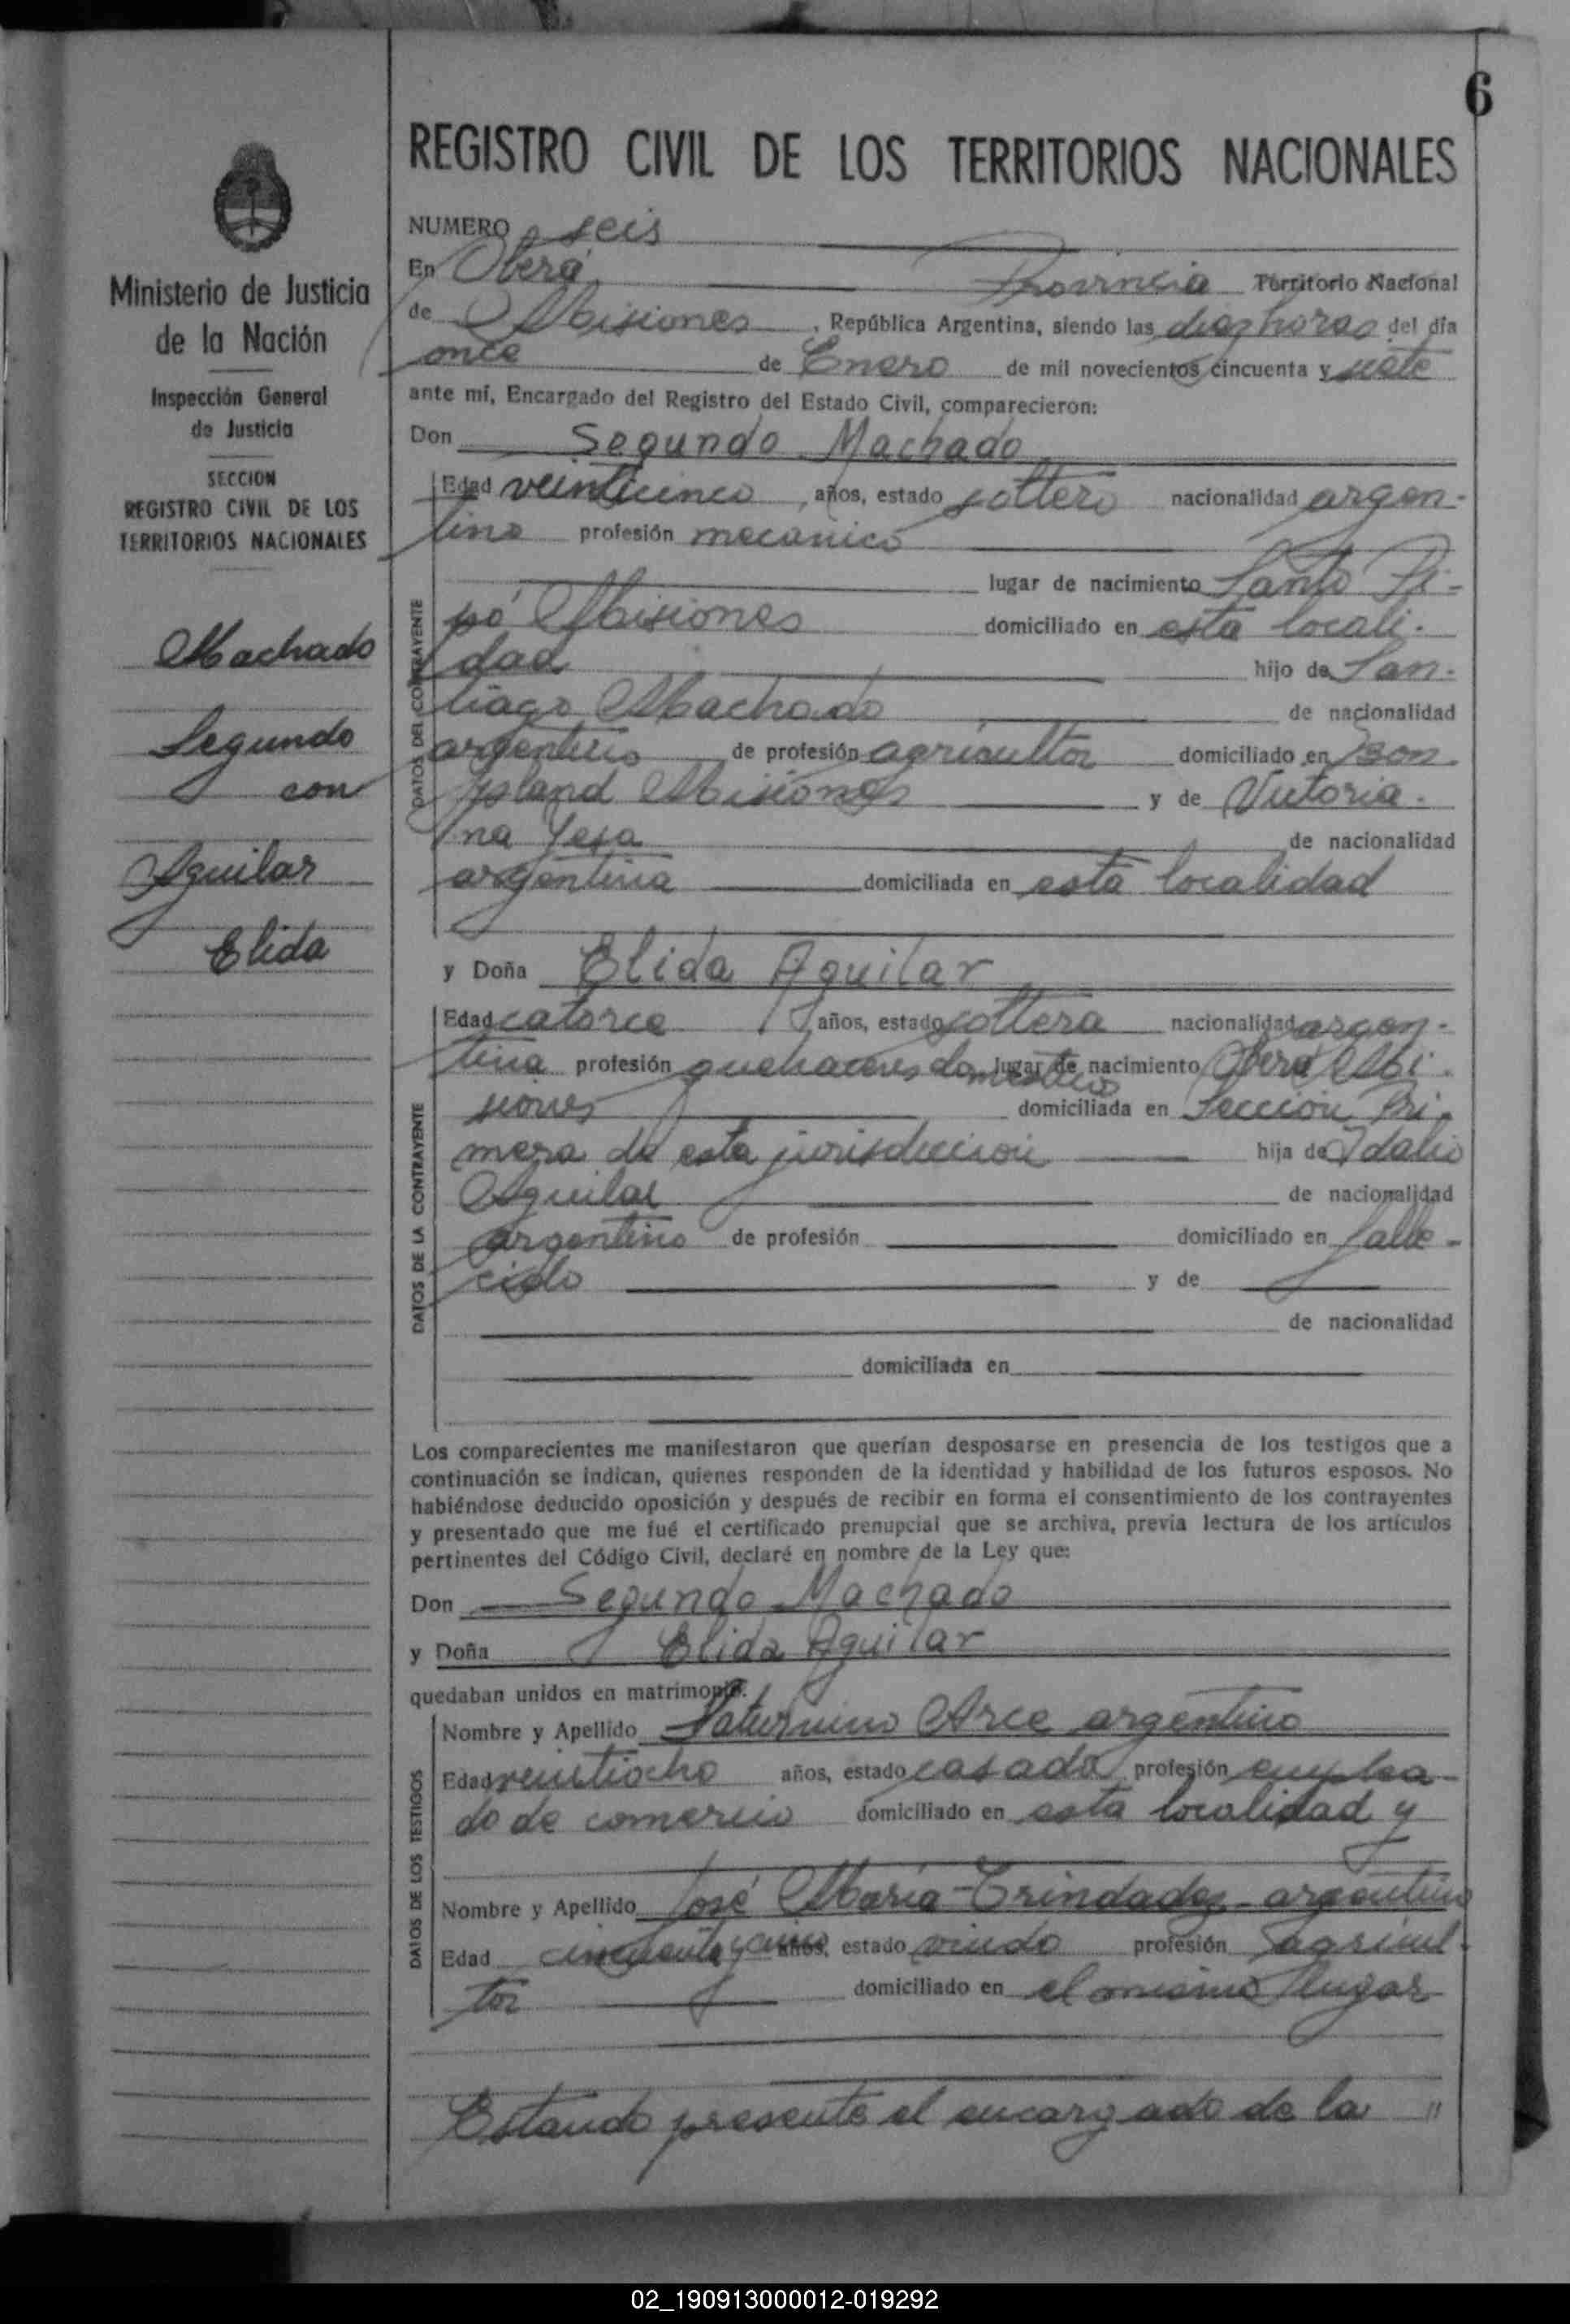 6
REGISTRO CIVIL DE LOS TERRITORIOS NACIONALES
Ministerio de Justicia
de la Nación
Inspección General
de Justicia
SECCION
REGISTRO CIVIL DE LOS
TERRITORIOS NACIONALES
Machado
Segundo
con
Aguilar
Elida
NUMERO seis
En Oberá Provincia Territorio Nacional
de Misiones, República Argentina, siendo las diez horas del día
once de Enero de mil novecientos cincuenta y siete
ante mí, Encargado del Registro del Estado Civil, comparecieron:
Don Segundo Machado
DATOS DEL CONTRAYENTE
Edad veinticinco, años, estado soltero nacionalidad argen-
tino profesión mecánico
lugar de nacimiento Santo Pi-
pó Misiones domiciliado en esta locali-
dad hijo de San-
tiago Machado de nacionalidad
argentino de profesión agricultor domiciliado en Bon-
pland Misiones y de Victoria-
na Yesa de nacionalidad
argentina domiciliada en esta localidad
y Doña Elida Aguilar
DATOS DE LA CONTRAYENTE
Edad catorce años, estado soltera nacionalidad argen-
tina profesión quehaceres domésticos lugar de nacimiento Oberá Mi-
siones domiciliada en Sección Pri-
mera de esta jurisdicción hija de Idalio
Aguilar de nacionalidad
argentino de profesión domiciliado en falle-
cido y de
de nacionalidad
domiciliada en
Los comparecientes me manifestaron que querían desposarse en presencia de los testigos que a
continuación se indican, quienes responden de la identidad y habilidad de los futuros esposos. No
habiéndose deducido oposición y después de recibir en forma el consentimiento de los contrayentes
y presentado que me fué el certificado prenupcial que se archiva, previa lectura de los artículos
pertinentes del Código Civil, declaré en nombre de la Ley que:
Don Segundo Machado
y Doña Elida Aguilar
quedaban unidos en matrimonio.
DATOS DE LOS TESTIGOS
Nombre y Apellido Saturnino Arce argentino
Edad veintiocho años, estado casado profesión emplea-
do de comercio domiciliado en esta localidad y
Nombre y Apellido José María Trindadez - argentino
Edad cincuenta y cinco años, estado viudo profesión agricul-
tor domiciliado en el mismo lugar
Estando presente el encargado de la "
02_190913000012-019292